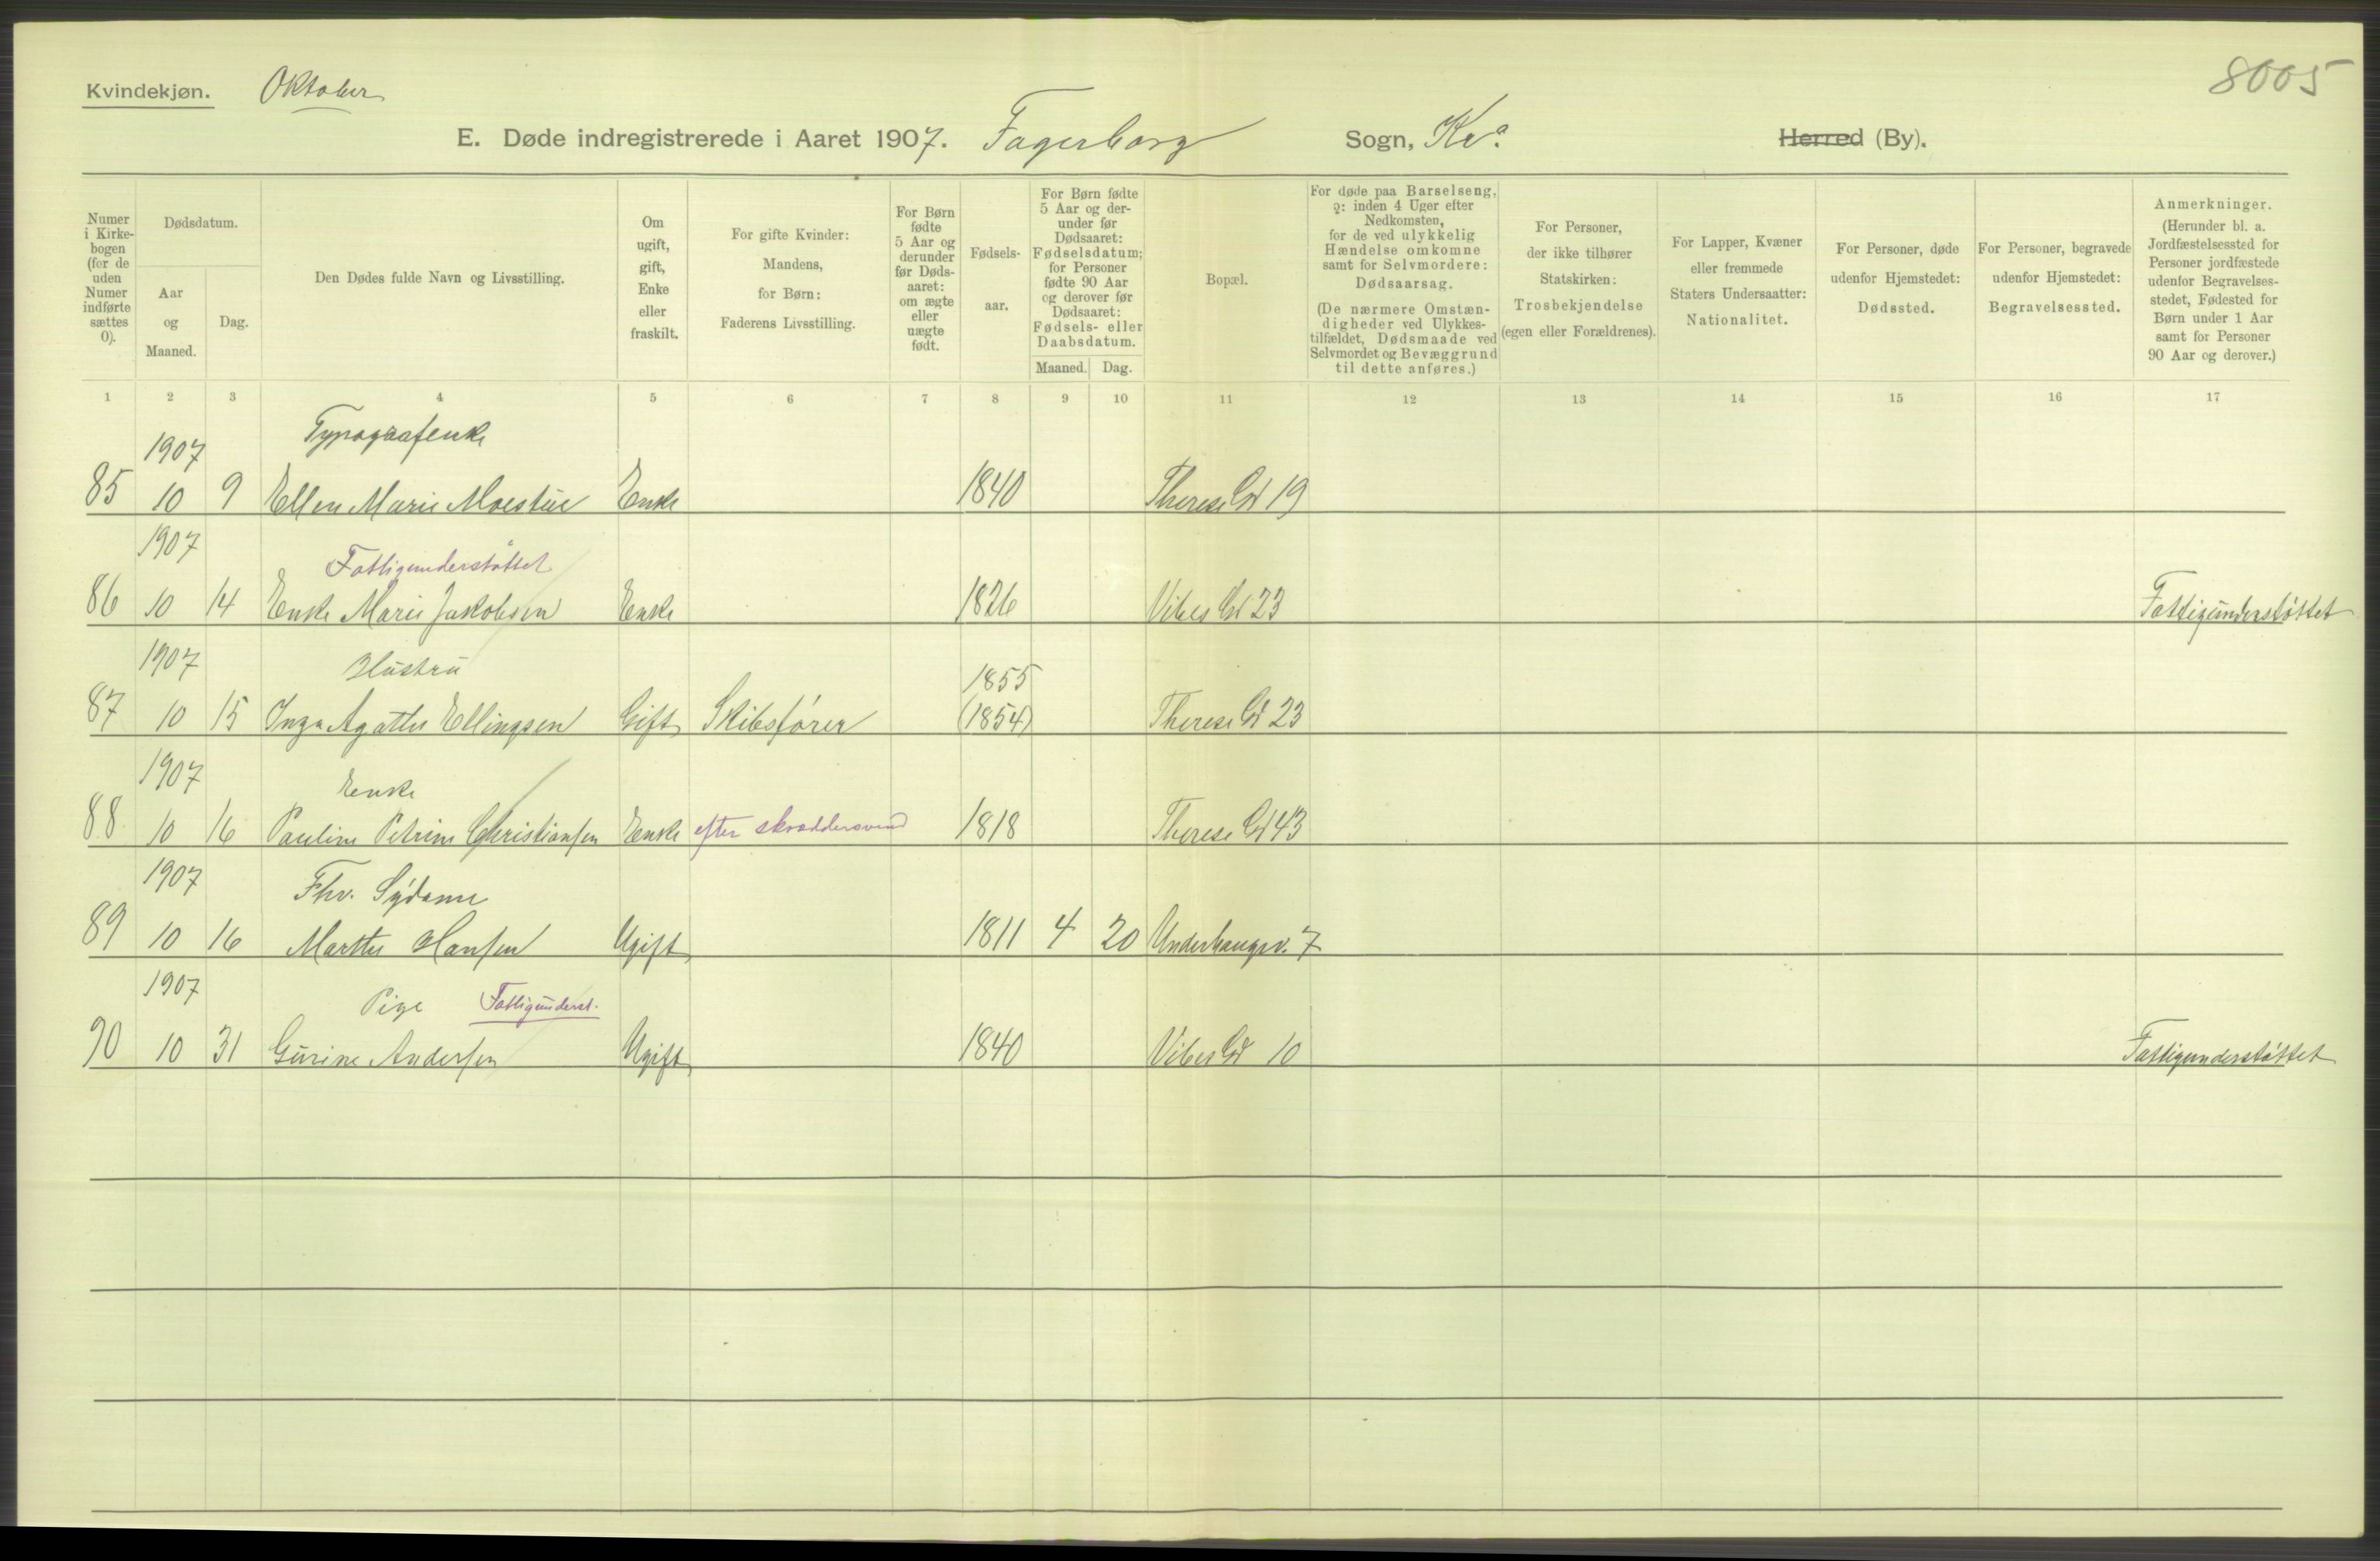 8005
Kvindekjøn. Oktober
E. Døde indregistrerede i Aaret 1907. Fagerborg Sogn, Kra. Herred (By).
Numer i Kirkebogen (for de uden Numer indførte sættes 0).
Dødsdatum.
Aar og Maaned.
Dag.
Den Dødes fulde Navn og Livsstilling.
Om ugift, gift, Enke eller fraskilt.
For gifte Kvinder: Mandens, for Børn: Faderens Livsstilling.
For Børn fødte 5 Aar og derunder før Dødsaaret: om ægte eller uægte født.
Fødselsaar.
For Børn fødte 5 Aar og derunder før Dødsaaret: Fødselsdatum; for Personer fødte 90 Aar og derover før Dødsaaret: Fødsels- eller Daabsdatum.
Maaned. Dag.
Bopæl.
For døde paa Barselseng, ɔ: inden 4 Uger efter Nedkomsten, for de ved ulykkelig Hændelse omkomne samt for Selvmordere: Dødsaarsag.
(De nærmere Omstændigheder ved Ulykkestilfældet, Dødsmaade ved Selvmordet og Bevæggrund til dette anføres.)
For Personer, der ikke tilhører Statskirken: Trosbekjendelse (egen eller Forældrenes).
For Lapper, Kvæner eller fremmede Staters Undersaatter: Nationalitet.
For Personer, døde udenfor Hjemstedet: Dødssted.
For Personer, begravede udenfor Hjemstedet: Begravelsessted.
Anmerkninger.
(Herunder bl. a. Jordfæstelsessted for Personer jordfæstede udenfor Begravelsesstedet, Fødested for Børn under 1 Aar samt for Personer 90 Aar og derover.)
1 2 3 4 5 6 7 8 9 10 11 12 13 14 15 16 17
1907 Typografenke
85 10 9 Ellen Marie Moestue Enke 1840 Therese Gd 19
1907 Fattigunderstøttet
86 10 14 Enke Marie Jakobsen Enke 1826 Vibes Gd 23 Fattigunderstøttet
1907 Hustru 1855
87 10 15 Inga Agathe Ellingsen Gift Skibsfører (1854) Therese Gd 23
1907 Enke
88 10 16 Pauline Petrine Christiansen Enke efter skræddersvend 1818 Therese Gd 43
1907 Fhv. Sydame
89 10 16 Marthe Hansen Ugift 1811 4 20 Underhaugsv. 7
1907 Pige Fattigunderst.
90 10 31 Gurine Andersen Ugift 1840 Vibes Gd 10 Fattigunderstøttet